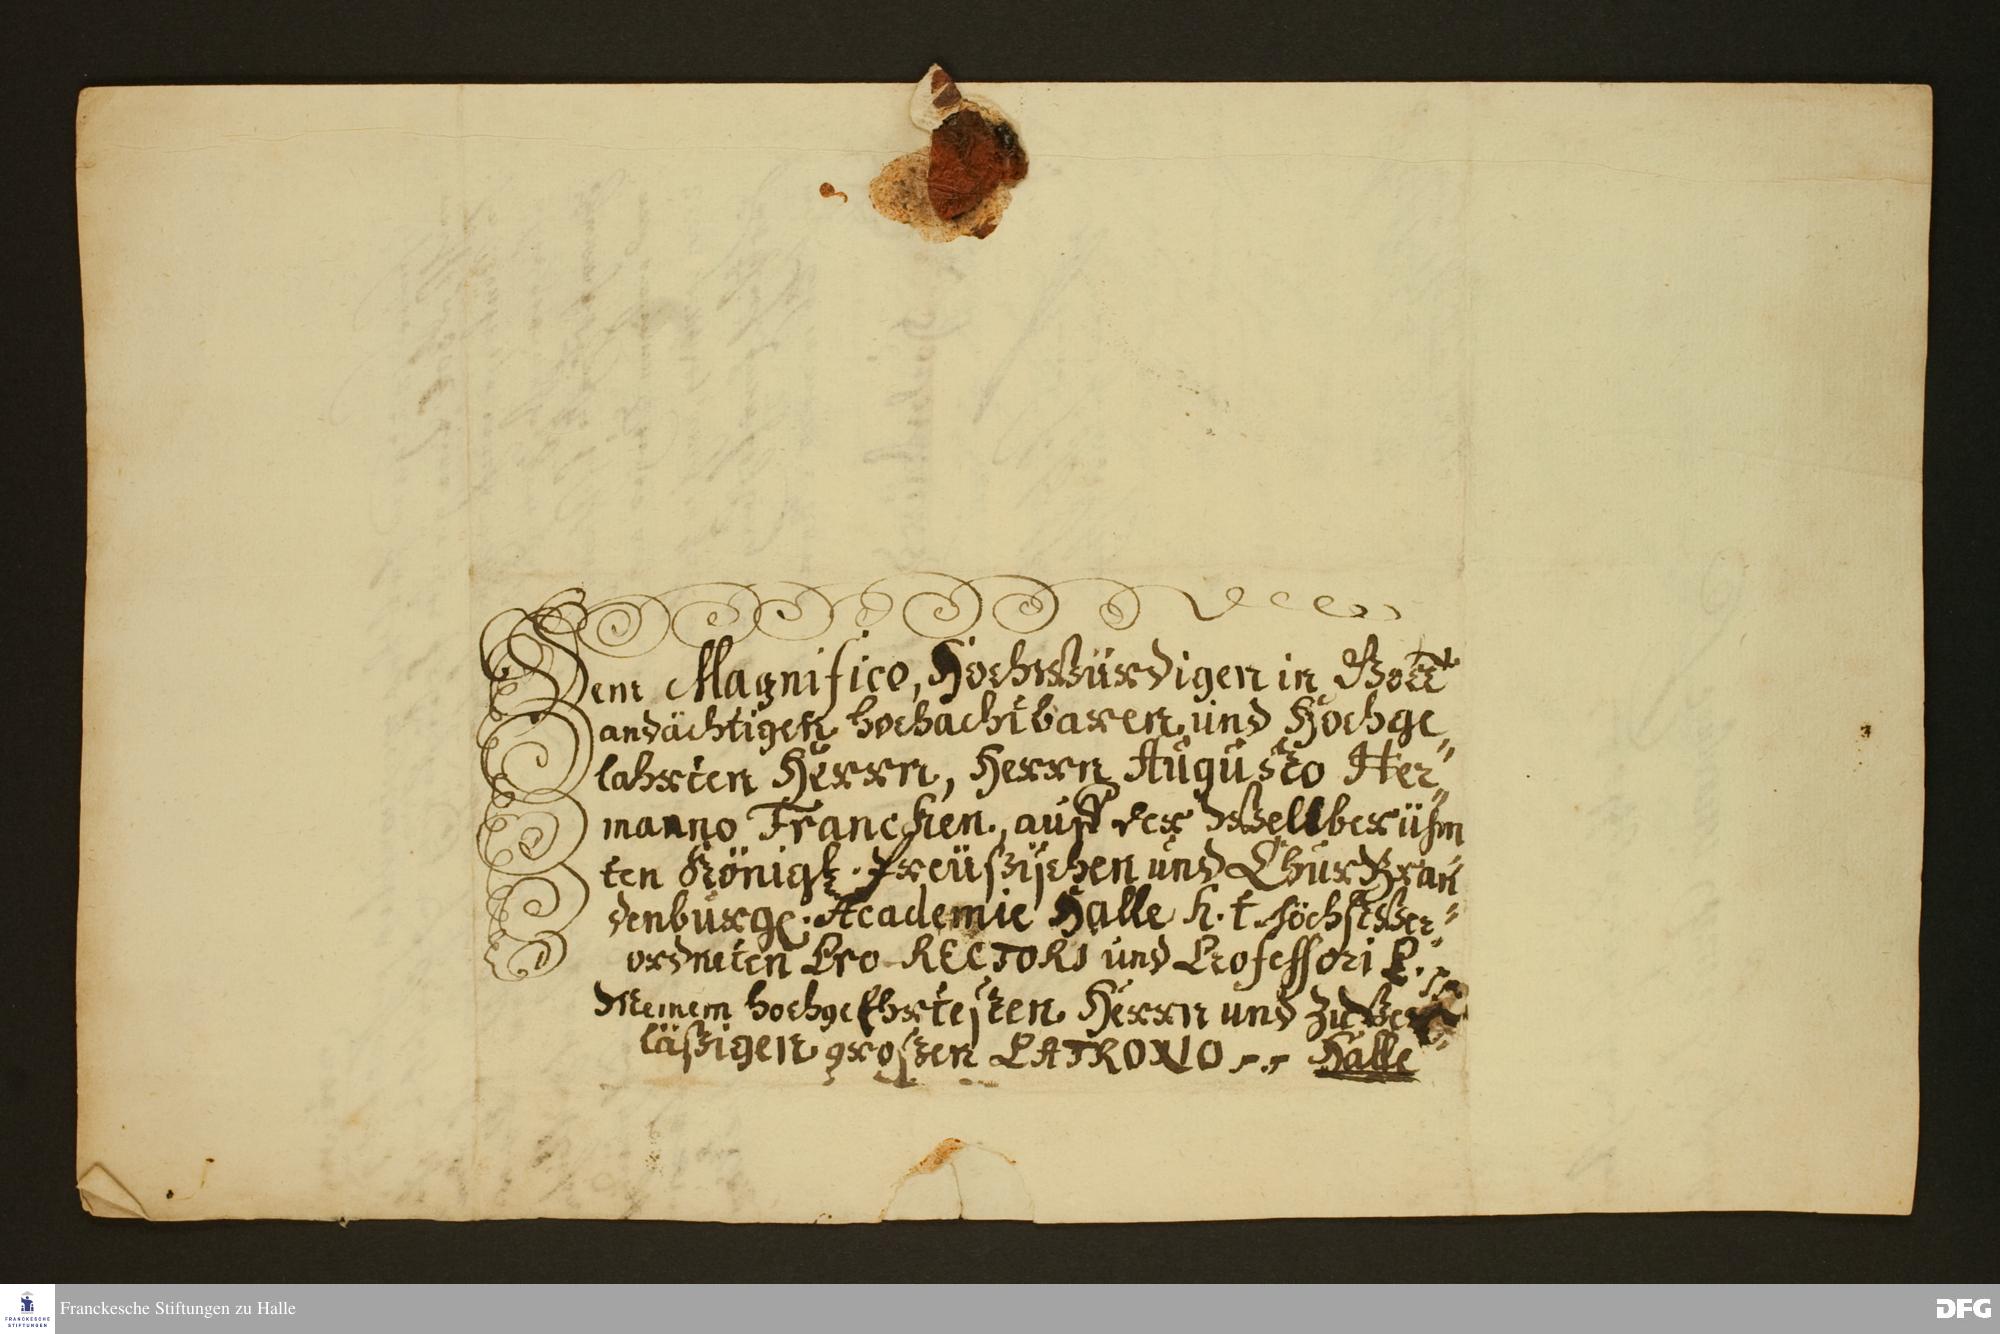 Dem Magnifico, Hochwürdigen in Gott
andächtigen hochachtbaren und Hochge„
lahrten Herrn, Herrn Augusto Her„
manno Francken, auff der Weltberühm
ten Königl. Preüßischen und Chur Bran„
denburg: Academie Halle h. t. höchstver„
ordneten Pro-RECTORI und Professori P.
Meinem hochgeEhrtesten Herrn und Zu Ver„
läßigen großen PATRONO Halle
Franckesche Stiftungen zu Halle
FRANCKESCHE
STIFTUNGEN
DFG